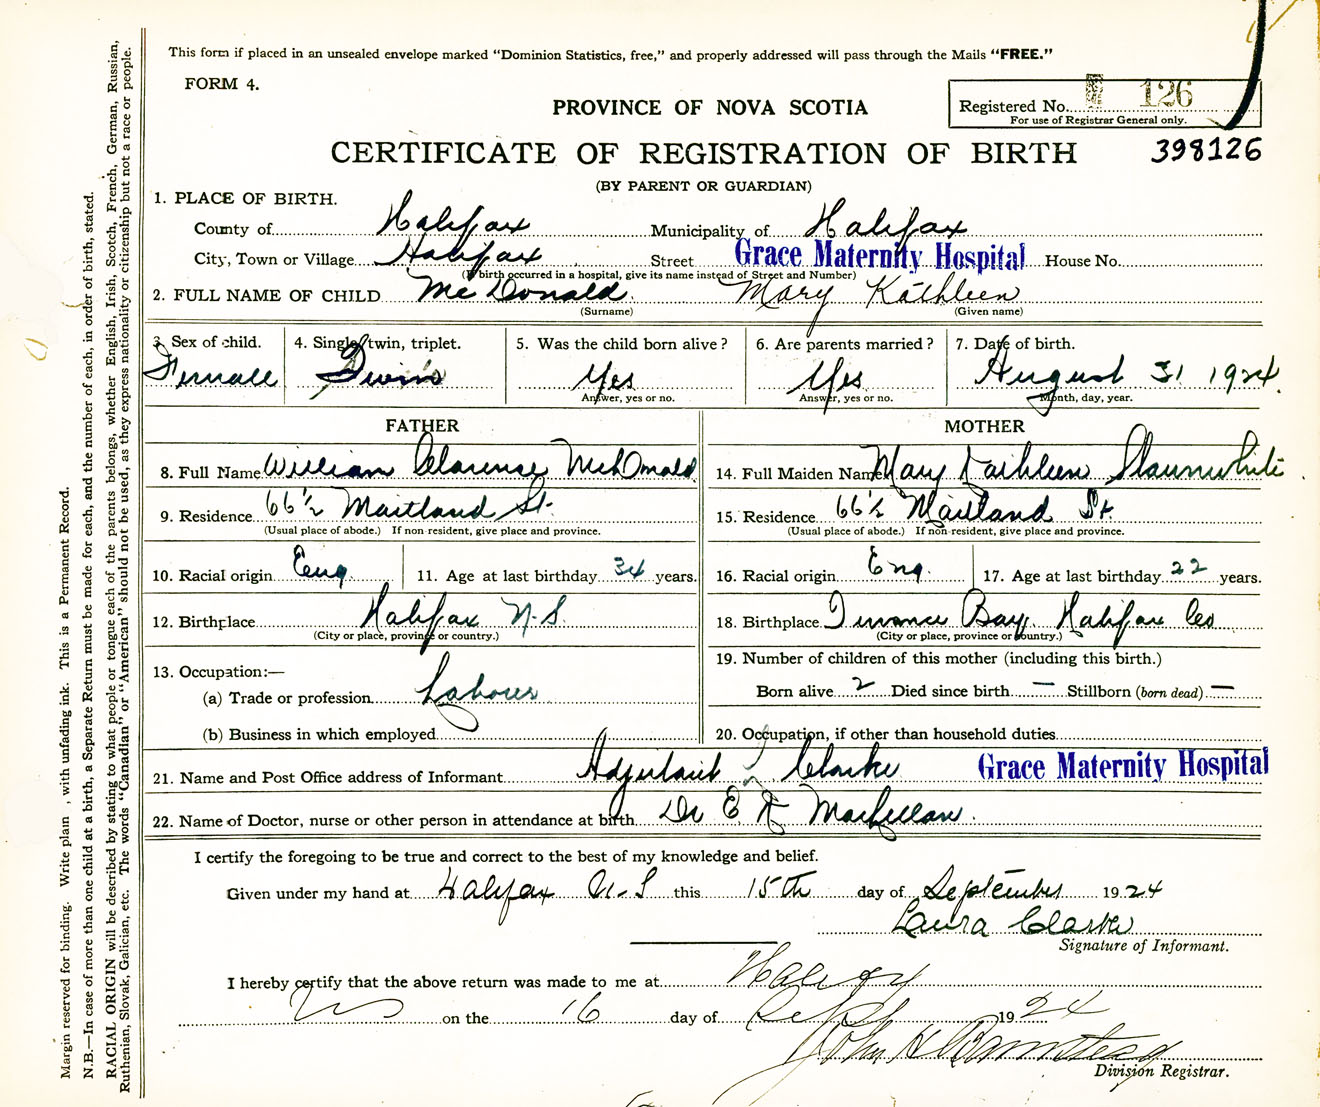 This form if placed in an unsealed envelope marked “Dominion Statistics, free,” and properly addressed will pass through the Mails “FREE.”
FORM 4.
Registered No. 126
For use of Registrar General only.
PROVINCE OF NOVA SCOTIA
CERTIFICATE OF REGISTRATION OF BIRTH 398126
(BY PARENT OR GUARDIAN)
1. PLACE OF BIRTH.
County of Halifax Municipality of Halifax
City, Town or Village Halifax Street Grace Maternity Hospital House No.
(If birth occurred in a hospital, give its name instead of Street and Number)
2. FULL NAME OF CHILD McDonald. Mary Kathleen
(Surname) (Given name)
3. Sex of child. 4. Single, twin, triplet. 5. Was the child born alive? 6. Are parents married? 7. Date of birth.
Female Twins Yes Yes August 31 1924.
Answer, yes or no. Answer, yes or no. Month, day, year.
FATHER MOTHER
8. Full Name William Clarence McDonald 14. Full Maiden Name Mary Kathleen Slaunwhite
9. Residence 66½ Maitland St. 15. Residence 66½ Maitland St.
(Usual place of abode.) If non-resident, give place and province. (Usual place of abode.) If non-resident, give place and province.
10. Racial origin Eng. 11. Age at last birthday 34 years. 16. Racial origin Eng. 17. Age at last birthday 22 years.
12. Birthplace Halifax N.S. 18. Birthplace Terrance Bay, Halifax Co
(City or place, province or country.) (City or place, province or country.)
13. Occupation:— 19. Number of children of this mother (including this birth.)
(a) Trade or profession Labourer Born alive 2 Died since birth — Stillborn (born dead) —
(b) Business in which employed 20. Occupation, if other than household duties
21. Name and Post Office address of Informant Adjutant L Clarke Grace Maternity Hospital
22. Name of Doctor, nurse or other person in attendance at birth Dr E K MacLellan.
I certify the foregoing to be true and correct to the best of my knowledge and belief.
Given under my hand at Halifax N.S this 15th day of September 1924
Laura Clarke
Signature of Informant.
I hereby certify that the above return was made to me at Halifax
NS on the 16 day of Sept 1924
John H
Division Registrar.
Margin reserved for binding. Write plain , with unfading ink. This is a Permanent Record.
N.B.—In case of more than one child at a birth, a Separate Return must be made for each, and the number of each, in order of birth, stated.
RACIAL ORIGIN will be described by stating to what people or tongue each of the parents belongs, whether English, Irish, Scotch, French, German, Russian,
Ruthenian, Slovak, Galician, etc. The words “Canadian” or “American” should not be used, as they express nationality or citizenship but not a race or people.